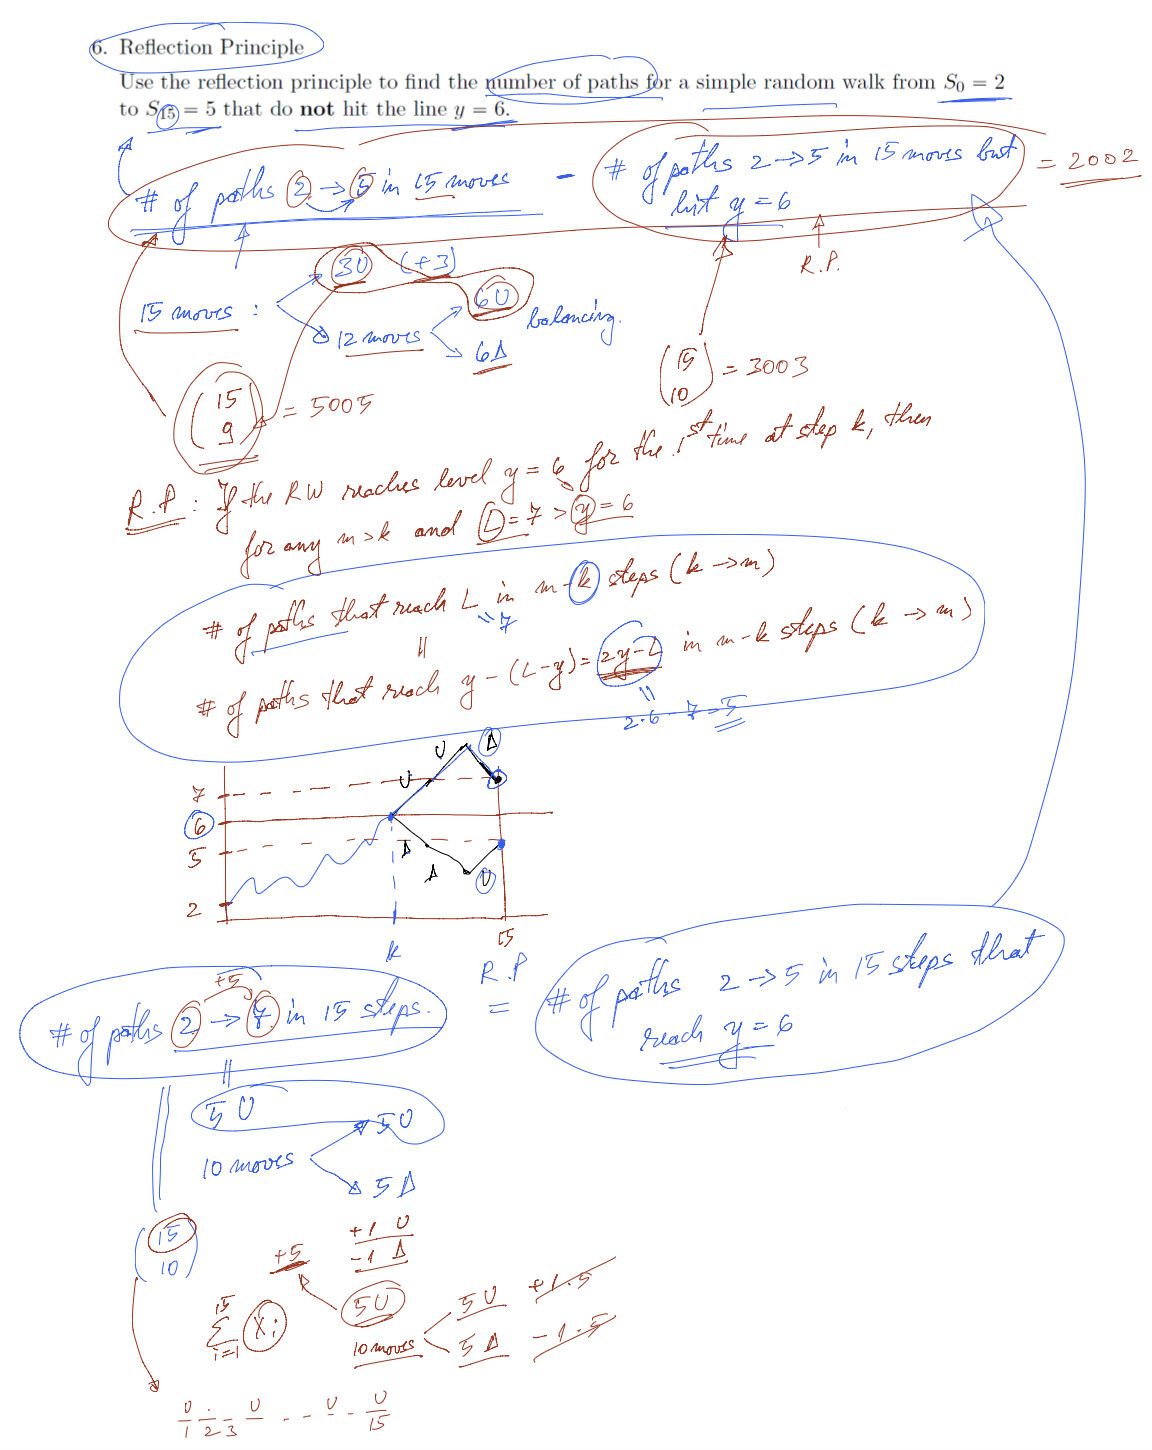 6. Reflection Principle
Use the reflection principle to find the number of paths for a simple random walk from S₀ = 2
to S₁₅ = 5 that do not hit the line y = 6.
# of paths 2 → 5 in 15 moves - # of paths 2 → 5 in 15 moves but
hit y = 6
= 2002
R.P.
3U (+3)
15 moves :
6U
balancing.
12 moves
6Δ
(15 9) = 5005
(15 10) = 3003
R.P : If the RW reaches level y = 6 for the 1st time at step k, then
for any m > k and L = 7 > y = 6
# of paths that reach L in m-k steps (k → m)
= 7
||
# of paths that reach y - (L-y) = 2y-L in m-k steps (k → m)
||
2·6 - 7 = 5
U U Δ
7
6
5
Δ Δ U
2
k 15
+5
# of paths 2 → 7 in 15 steps.
R.P
=
# of paths 2 → 5 in 15 steps that
reach y = 6
||
5U
5U
10 moves
5Δ
(15 10)
+1 U
-1 Δ
+5
5U
5U +1·5
10 moves
5Δ -1·5
15
Σ Xi
i=1
U . U - - U - U
1 2 3 15